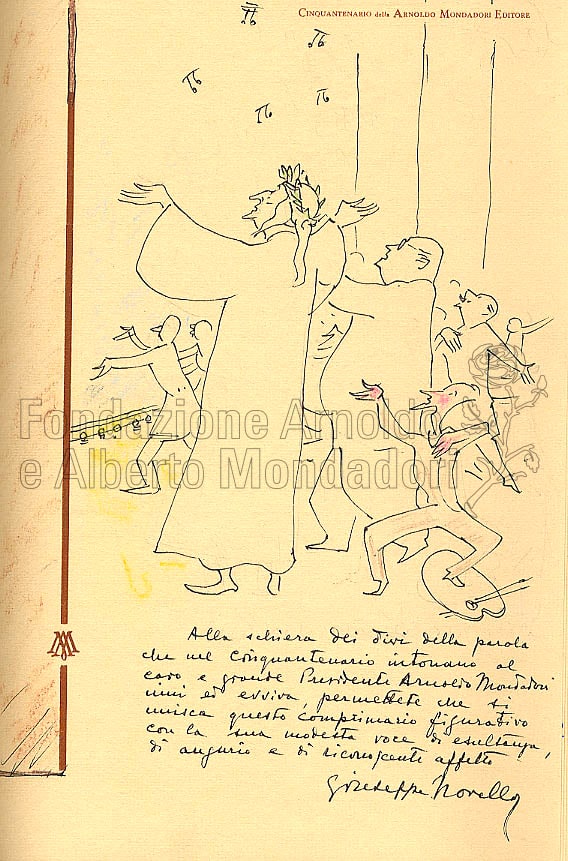 CINQUANTENARIO della ARNOLDO MONDADORI EDITORE
Fondazione Arnoldo
e Alberto Mondadori
Alla schiera dei divi della parola
che nel cinquantenario intonano al
caro e grande Presidente Arnoldo Mondadori
inni ed evviva, permettete che si
unisca questo comprimario figurativo
con la sua modesta voce di esultanza,
di augurio e di riconoscente affetto
Giuseppe Novello